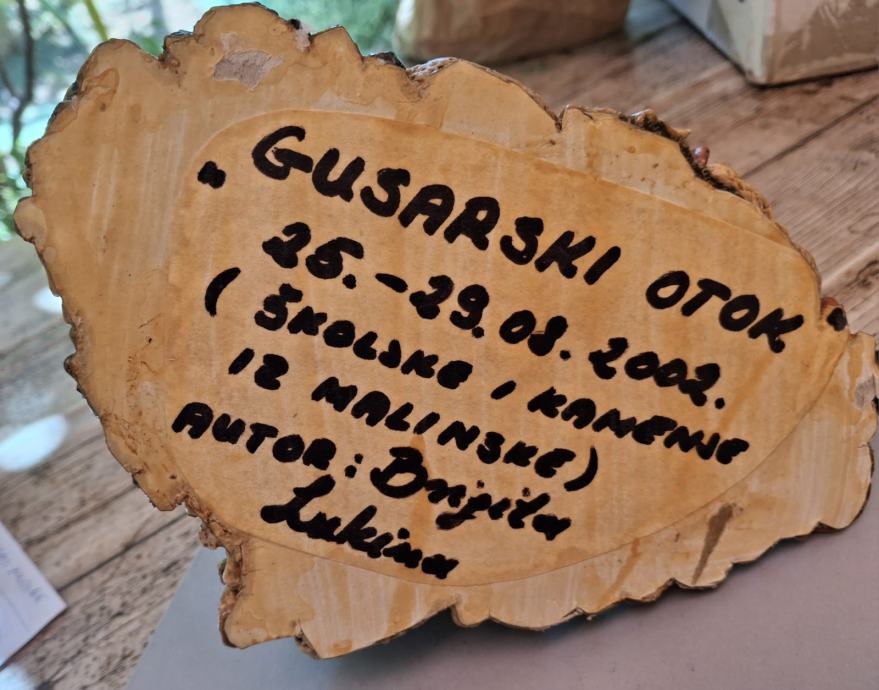 " GUSARSKI OTOK "
25.-29.08.2002.
( ŠKOLJKE I KAMENJE
IZ MALINSKE)
AUTOR: Brigita
Lukina